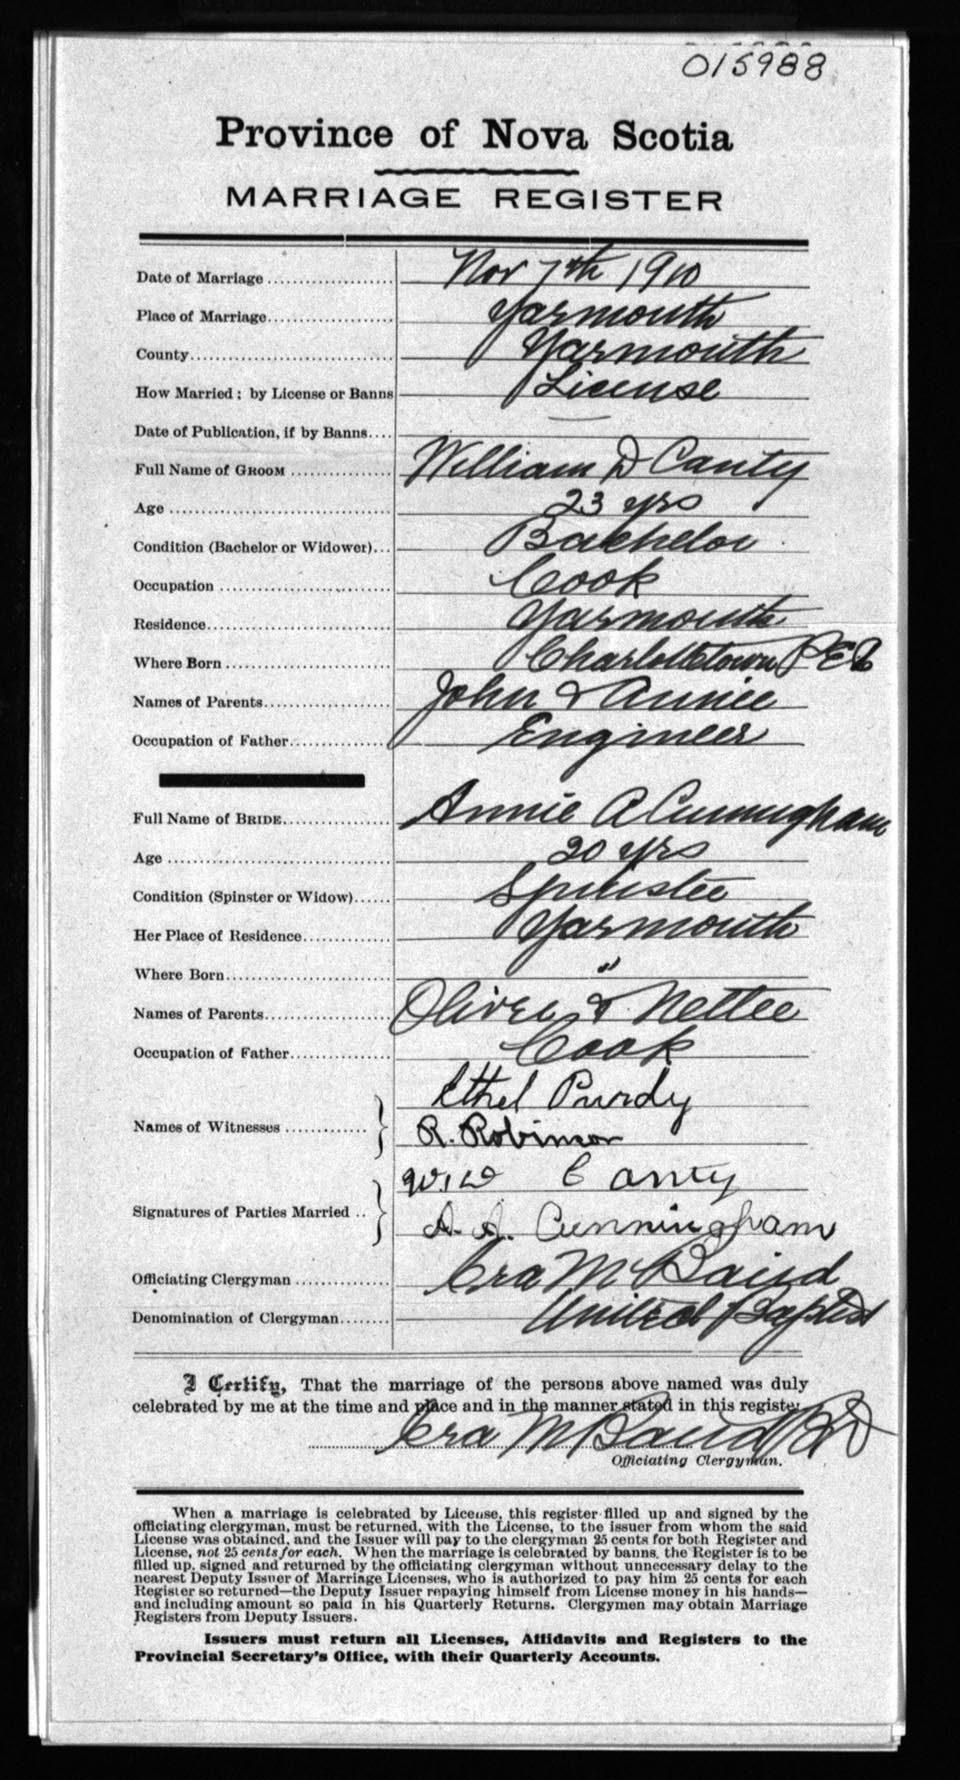 015988
Province of Nova Scotia
MARRIAGE REGISTER
Date of Marriage Nov 7th 1910
Place of Marriage Yarmouth
County Yarmouth
How Married: by License or Banns License
Date of Publication, if by Banns —
Full Name of GROOM William D Canty
Age 23 yrs
Condition (Bachelor or Widower) Bachelor
Occupation Cook
Residence Yarmouth
Where Born Charlottetown PEI
Names of Parents John & Annie
Occupation of Father Engineer
Full Name of BRIDE Annie A Cunningham
Age 20 yrs
Condition (Spinster or Widow) Spinster
Her Place of Residence Yarmouth
Where Born "
Names of Parents Oliver & Nettee
Occupation of Father Cook
Ethel Purdy
Names of Witnesses
R. Robinson
W. D Canty
Signatures of Parties Married
A. A. Cunningham
Officiating Clergyman Ora M Baird
Denomination of Clergyman United Baptist
I Certify, That the marriage of the persons above named was duly
celebrated by me at the time and place and in the manner stated in this register
Ora M Baird
Officiating Clergyman.
When a marriage is celebrated by License, this register filled up and signed by the
officiating clergyman, must be returned, with the License, to the issuer from whom the said
License was obtained, and the Issuer will pay to the clergyman 25 cents for both Register and
License, not 25 cents for each. When the marriage is celebrated by banns, the Register is to be
filled up, signed and returned by the officiating clergyman without unnecessary delay to the
nearest Deputy Issuer of Marriage Licenses, who is authorized to pay him 25 cents for each
Register so returned—the Deputy Issuer repaying himself from License money in his hands—
and including amount so paid in his Quarterly Returns. Clergymen may obtain Marriage
Registers from Deputy Issuers.
Issuers must return all Licenses, Affidavits and Registers to the
Provincial Secretary's Office, with their Quarterly Accounts.